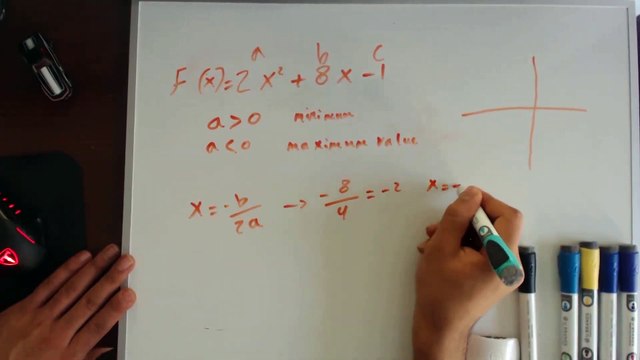 a b c
F(x)=2x²+8x-1
a>0 minimum
a<0 maximum value
x=-b/2a → -8/4=-2 x=-